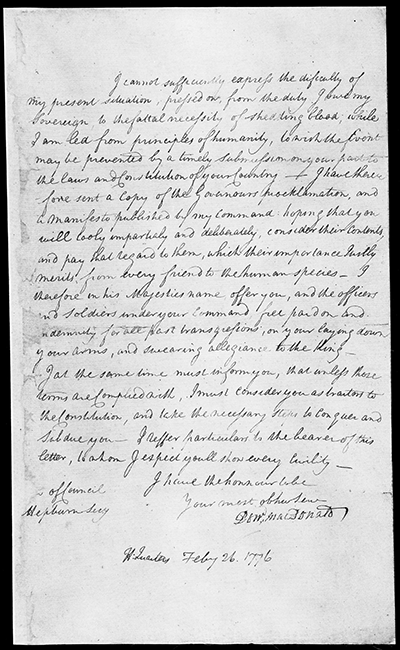 I cannot sufficiently express the dificulty of
my present situation, pressed on, from the duty I owe my
Sovereign to the fatal necessity of shedding blood, while
I am led from principles of humanity, to wish the Event
may be prevented by a timely submission on your part to
the laws and Constitution of your Country — I have there
fore sent a Copy of the Governours proclamation, and
a Manifesto published by my Command: hoping that you
will cooly impartialy and deliberately, consider their Contents,
and pay that regard to them, which their importance Justly
merits from every friend to the human species — I
therefore in his Majesties name offer you, and the officers
and soldiers under your Command free pardon and
indemnity for all past transgressions, on your laying down
your arms, and swearing allegiance to the King —
I at the same time must inform you, that unless these
terms are complied with, I must consider you as traitors to
the Constitution, and take the necessary steps to Conquer and
Subdue you — I reffer particulars to the bearer of this
letter, to whom I expect youll show every Civility —
I have the honnour to be
of Council
Your most obher Serv
Hepburn Secy
Don: MacDonald
Hd Quarters Feby 26. 1776